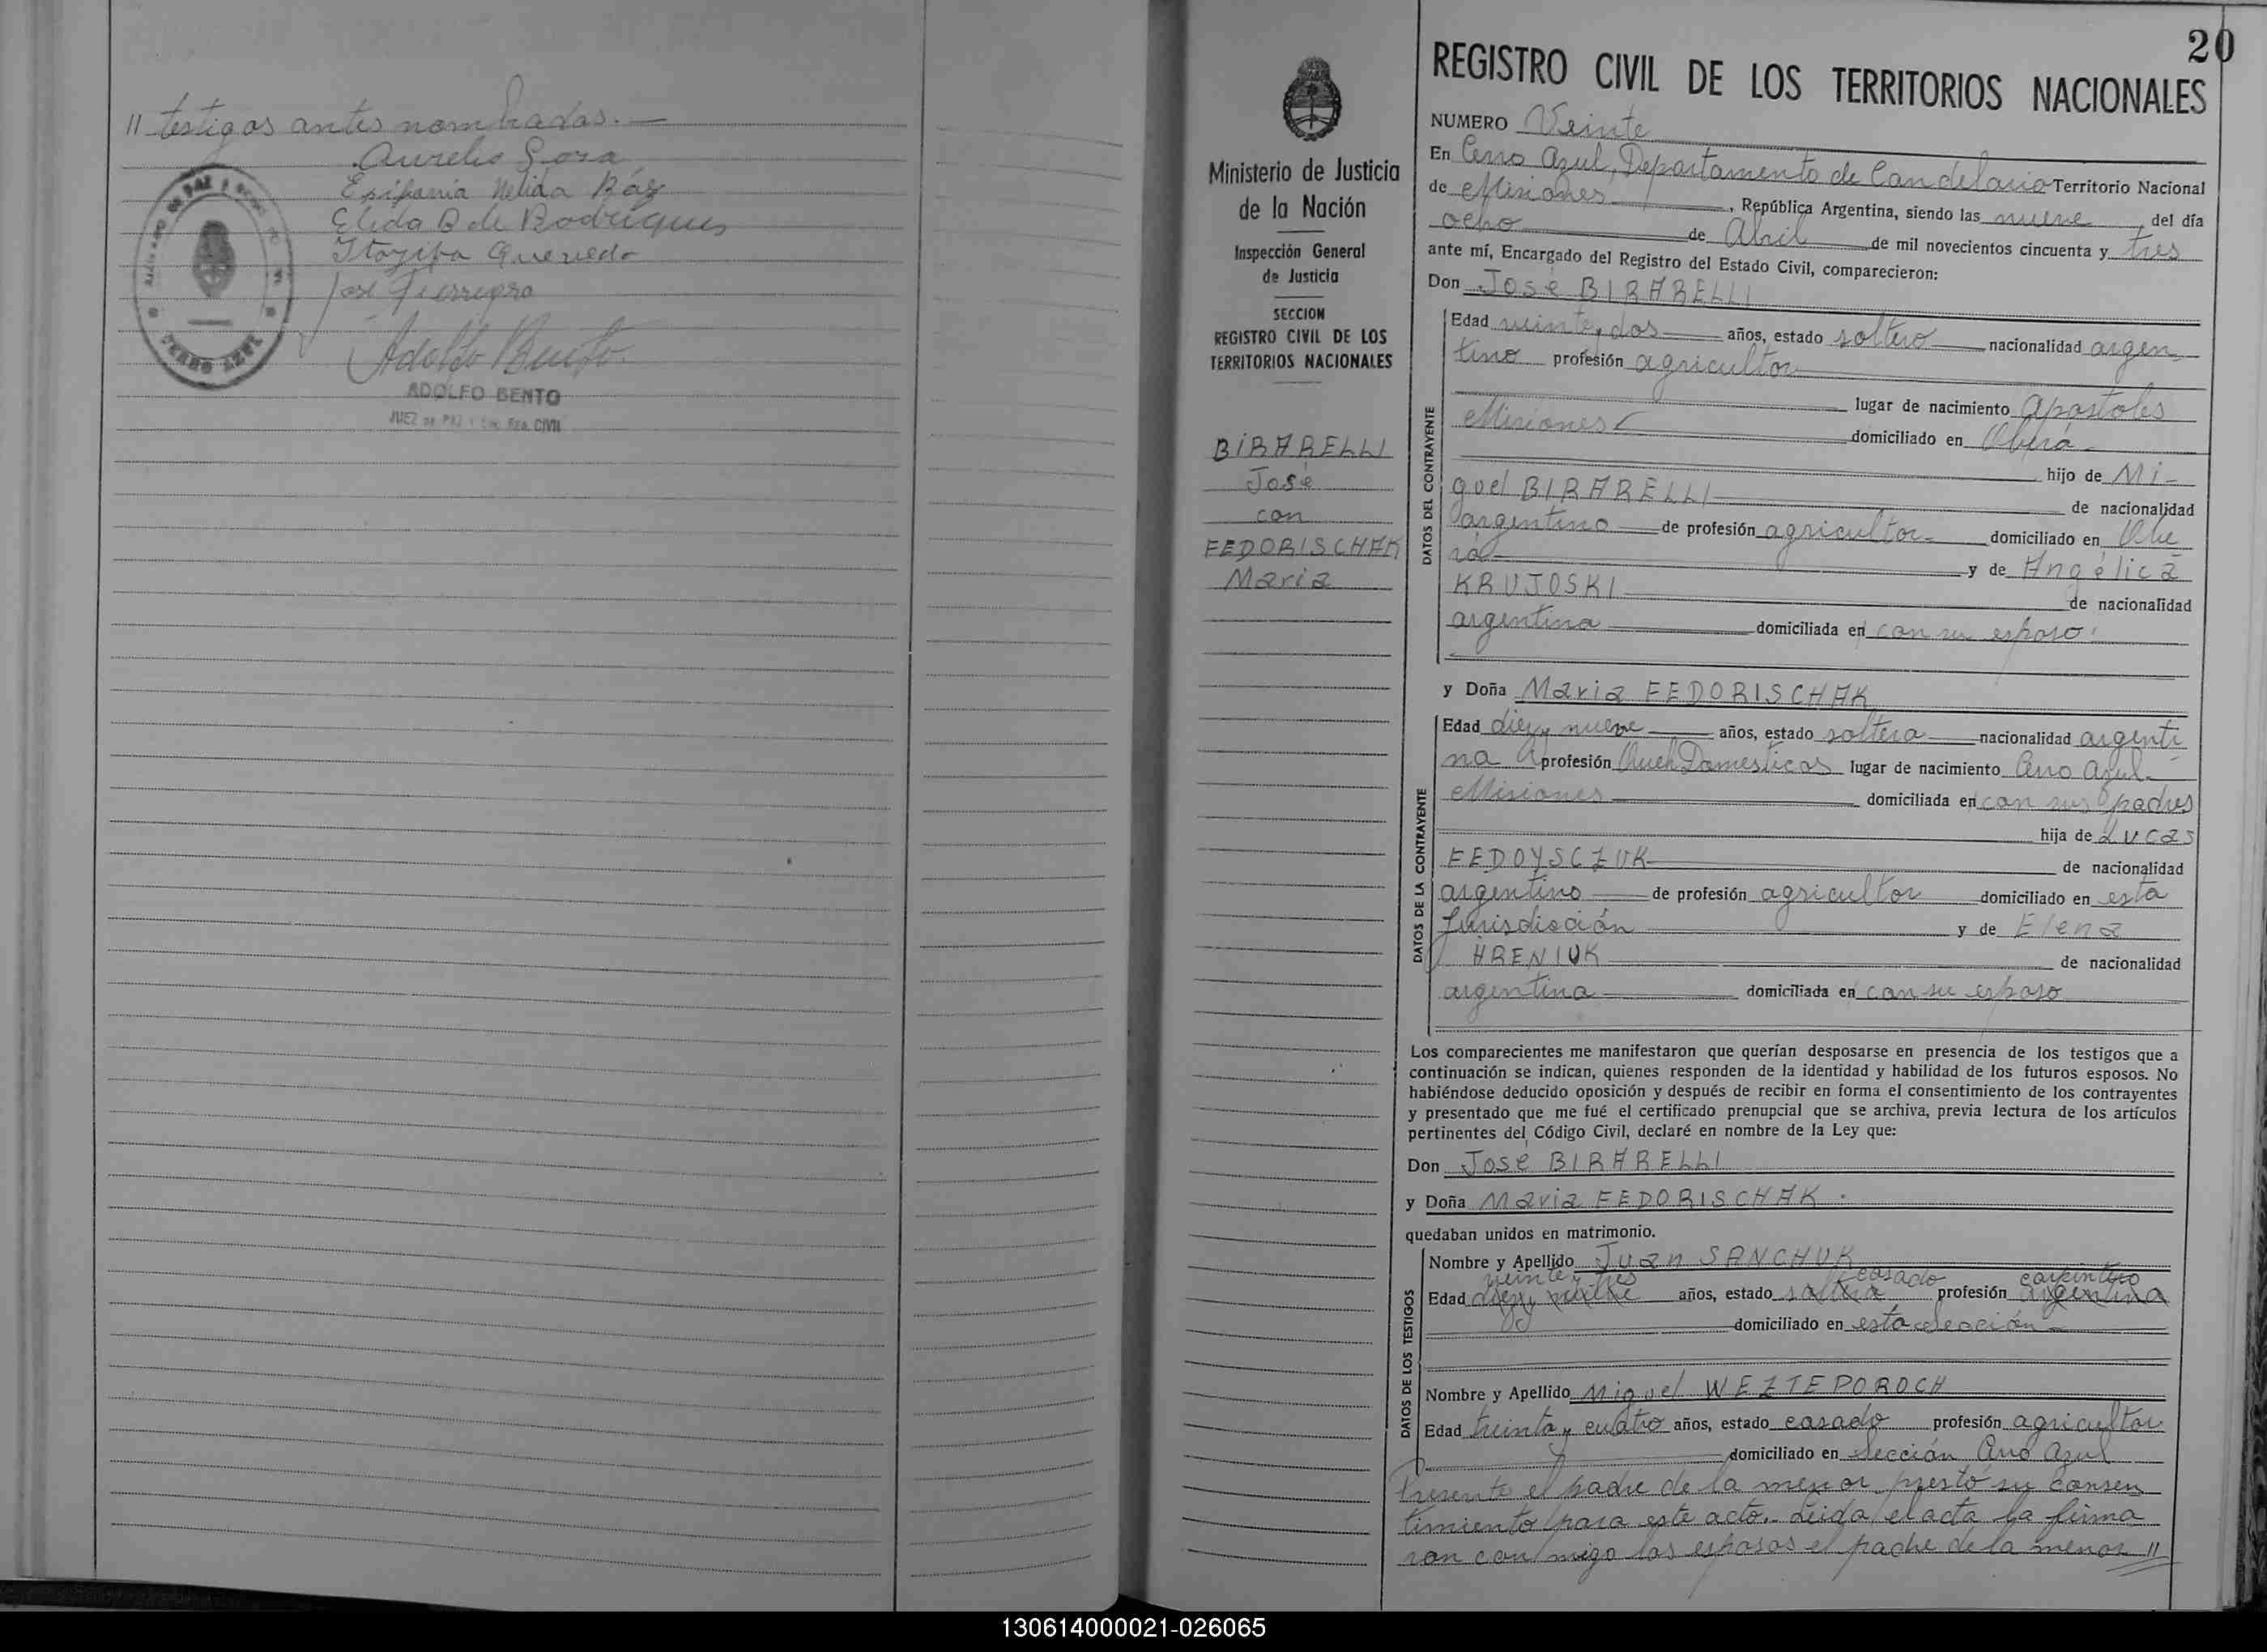 // testigos antes nombrados.—
Aurelio Sosa
Epifania Nelida Báez
Elida B de Rodrigues
Quevedo
José
Adolfo Bento
ADOLFO BENTO
JUEZ DE PAZ CIVIL
CERRO AZUL
20
Ministerio de Justicia
de la Nación
Inspección General
de Justicia
SECCION
REGISTRO CIVIL DE LOS
TERRITORIOS NACIONALES
BIRARELLI
José
con
FEDORISCHAK
Maria
REGISTRO CIVIL DE LOS TERRITORIOS NACIONALES
NUMERO Veinte
En Cerro Azul, Departamento de Candelaria Territorio Nacional
de Misiones, República Argentina, siendo las nueve del día
ocho de Abril de mil novecientos cincuenta y tres
ante mí, Encargado del Registro del Estado Civil, comparecieron:
Don José BIRARELLI
DATOS DEL CONTRAYENTE
Edad veinte y dos años, estado soltero nacionalidad argen-
tino profesión agricultor
lugar de nacimiento Apostoles
Misiones domiciliado en Oberá-
hijo de Mi-
guel BIRARELLI de nacionalidad
argentino de profesión agricultor- domiciliado en Obe
rá y de Angélica
KRUJOSKI de nacionalidad
argentina domiciliada en con su esposo.
y Doña Maria FEDORISCHAK
DATOS DE LA CONTRAYENTE
Edad diez y nueve años, estado soltera nacionalidad argenti
na profesión Queh Domesticos lugar de nacimiento Cerro Azul-
Misiones domiciliada en con sus padres
hija de Lucas
FEDOYSCZUK de nacionalidad
argentino de profesión agricultor domiciliado en esta
Jurisdicción y de Elena
HRENIUK de nacionalidad
argentina domiciliada en con su esposo
Los comparecientes me manifestaron que querían desposarse en presencia de los testigos que a
continuación se indican, quienes responden de la identidad y habilidad de los futuros esposos. No
habiéndose deducido oposición y después de recibir en forma el consentimiento de los contrayentes
y presentado que me fué el certificado prenupcial que se archiva, previa lectura de los artículos
pertinentes del Código Civil, declaré en nombre de la Ley que:
Don José BIRARELLI
y Doña Maria FEDORISCHAK.
quedaban unidos en matrimonio.
DATOS DE LOS TESTIGOS
Nombre y Apellido Juan SANCHUK
veinte y tres casado carpintero
Edad diez y nueve años, estado soltera profesión argentina
domiciliado en esta Sección-
Nombre y Apellido Miguel WEZTEPOROCH
Edad treinta y cuatro años, estado casado profesión agricultor
domiciliado en Sección Cerro Azul
Presente el padre de la menor presto su consen
timiento para este acto.- Leida el acta la firma
ron con migo los esposos el padre de la menor //
130614000021-026065